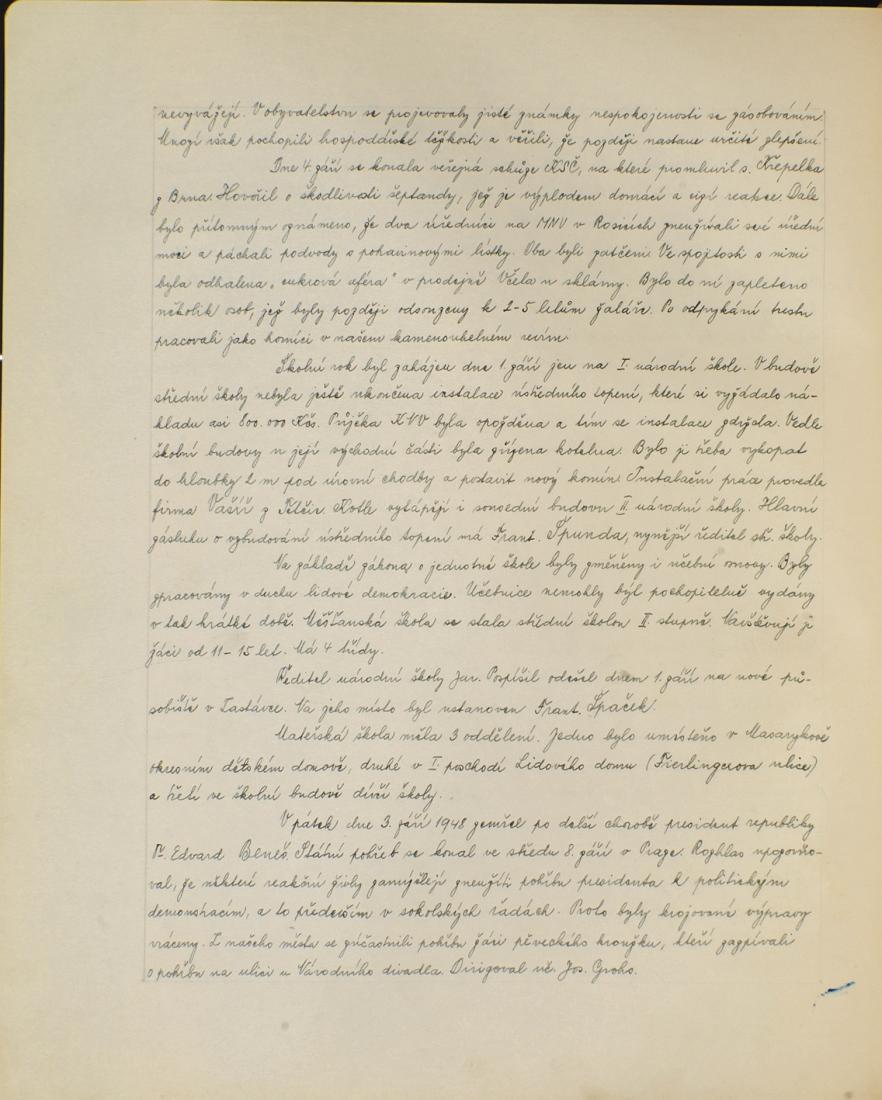 nevyvážejí. V obyvatelstvu se projevovaly jisté známky nespokojenosti se zásobováním.
Mnozí však pochopili hospodářské těžkosti a věřili, že později nastane určité zlepšení.
Dne 4. září se konala veřejná schůze KSČ, na které promluvil s. Křepelka
z Brna. Hovořil o škodlivosti šeptandy, jež je výplodem domácí a cizí reakce. Dále
bylo přítomným oznámeno, že dva úředníci na MNV v Rosicích zneužívali své úřední
moci a páchali podvody s potravinovými lístky. Oba byli zatčeni. Ve spojitosti s nimi
byla odhalena "cukrová aféra" v prodejně Včela u sklárny. Bylo do ní zapleteno
několik osob, jež byly později odsouzeny k 2-5 letům žaláře. Po odpykání trestu
pracovali jako horníci v našem kamenouhelném revíru.
Školní rok byl zahájen dne 1. září jen na I. národní škole. V budově
střední školy nebyla ještě ukončena instalace ústředního topení, které si vyžádalo ná-
kladu asi 800.000 Kčs. Půjčka KNV byla opožděna a tím se instalace zdržela. Vedle
školní budovy u její východní části byla zřízena kotelna. Bylo ji třeba vykopat
do hloubky 2 m pod úrovní chodby a postavit nový komín. Instalační práce provedla
firma Vašíř z Kotle vytápějí i sousední budovu II. národní školy. Hlavní
zásluhu o vybudování ústředního topení má Frant. Špunda, nynější ředitel stř. školy.
Na základě zákona o jednotné škole byly změněny i učební osnovy. Byly
zpracovány v duchu lidové demokracie. Učebnice nemohly být pochopitelně vydány
v tak krátké době. Měšťanská škola se stala střední školou II. stupně. Navštěvují ji
žáci od 11-15 let. Má 4 třídy.
Ředitel národní školy Jar. Pospíšil odešel dnem 1. září na nové pů-
sobiště v Zastávce. Na jeho místo byl ustanoven Frant. Špaček.
Mateřská škola měla 3 oddělení. Jedno bylo umístěno v Masarykově
okresním dětském domově, druhé v I. poschodí Lidového domu (Fierlingerova ulice)
a třetí ve školní budově dívčí školy.
V pátek dne 3. září 1948 zemřel po delší chorobě president republiky
Dr. Edvard Beneš. Státní pohřeb se konal ve středu 8. září v Praze. Rozhlas upozorňo-
val, že některé reakční živly zamýšlejí zneužíti pohřbu presidenta k politickým
demonstracím, a to především v sokolských řadách. Proto byly krojované výpravy
vráceny. Z našeho města se zúčastnili pohřbu žáci pěveckého kroužku, kteří zazpívali
o pohřbu na ulici u Národního divadla. Dirigoval uč. Jos. Groho.